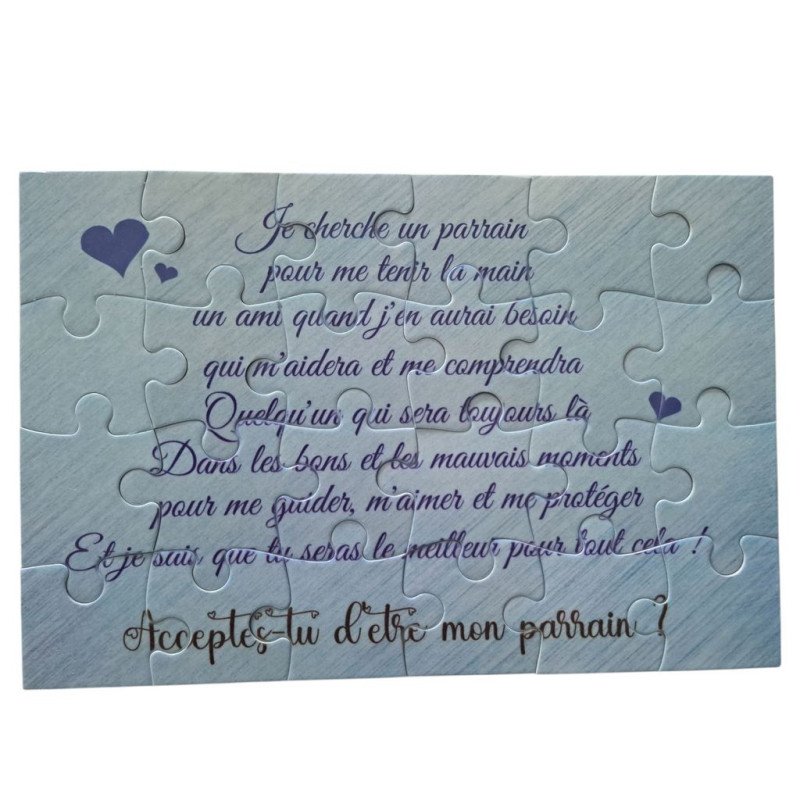 Je cherche un parrain
pour me tenir la main
un ami quand j'en aurai besoin
qui m'aidera et me comprendra
Quelqu'un qui sera toujours là
Dans les bons et les mauvais moments
pour me guider, m'aimer et me protéger
Et je suis que tu seras le meilleur pour tout cela !
Acceptes-tu d'etre mon parrain ?